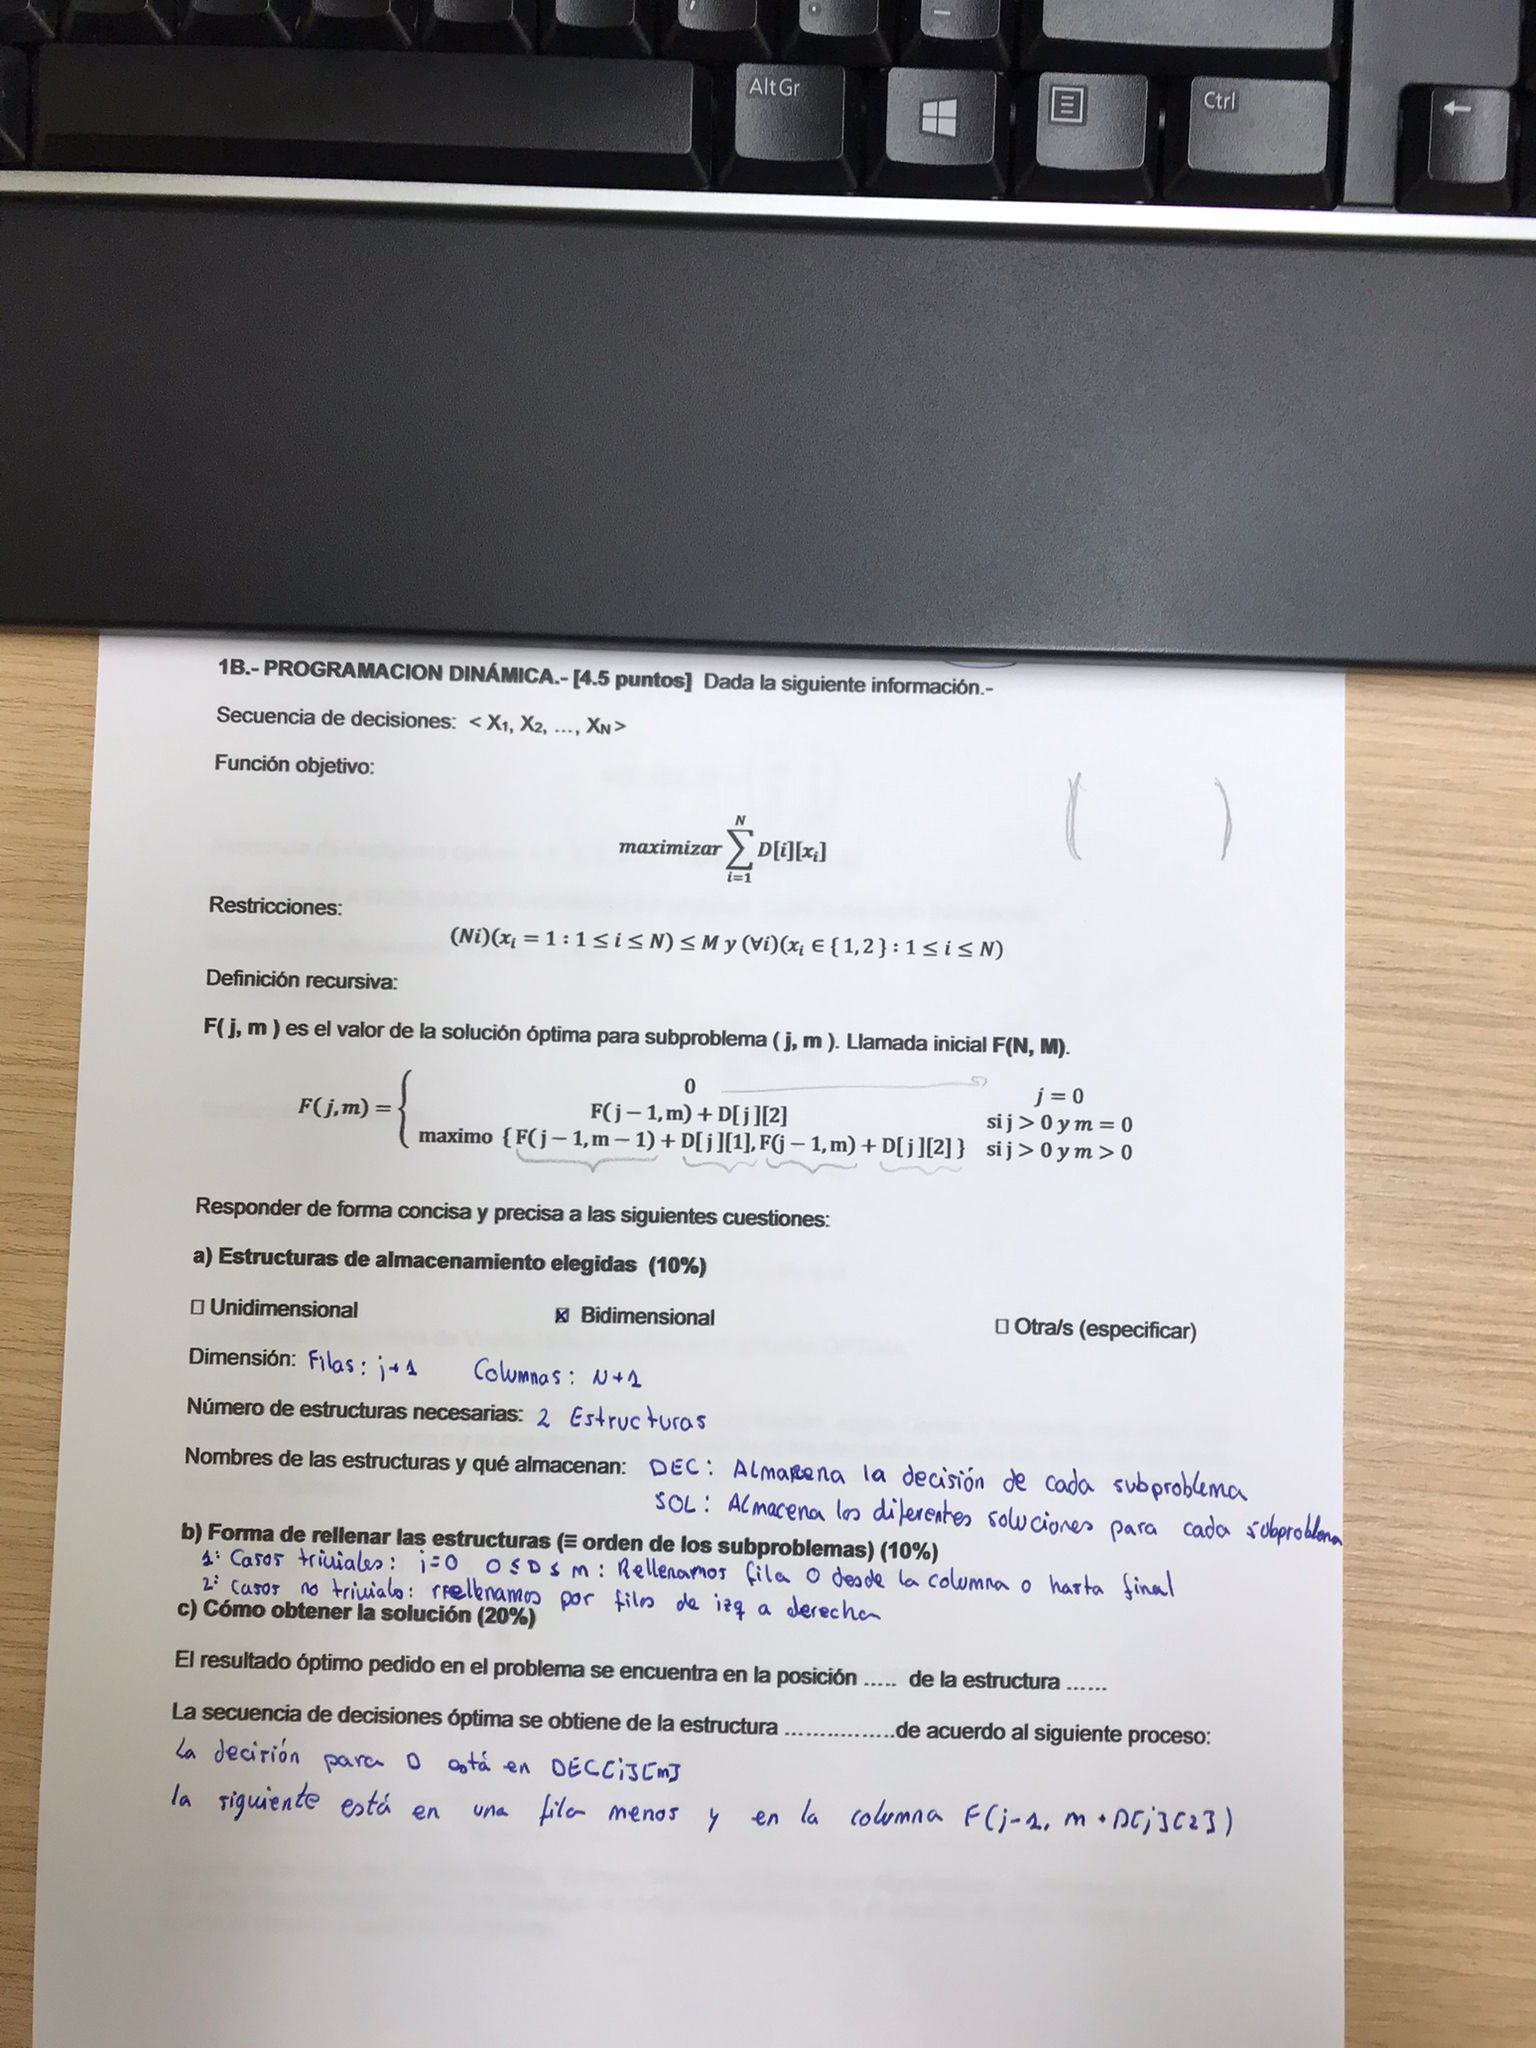 AltGr
Ctrl
←
1B.- PROGRAMACION DINÁMICA.- [4.5 puntos] Dada la siguiente información.-
Secuencia de decisiones: < X₁, X₂, ..., X_N >
Función objetivo:
N
maximizar ∑ D[i][xᵢ]
i=1
Restricciones:
(Ni)(xᵢ = 1 : 1 ≤ i ≤ N) ≤ M y (∀i)(xᵢ ∈ { 1, 2 } : 1 ≤ i ≤ N)
Definición recursiva:
F( j, m ) es el valor de la solución óptima para subproblema ( j, m ). Llamada inicial F(N, M).
0 j = 0
F(j, m) = { F(j − 1, m) + D[ j ][2] si j > 0 y m = 0
maximo { F(j − 1, m − 1) + D[ j ][1], F(j − 1, m) + D[ j ][2] } si j > 0 y m > 0
Responder de forma concisa y precisa a las siguientes cuestiones:
a) Estructuras de almacenamiento elegidas (10%)
☐ Unidimensional ☒ Bidimensional ☐ Otra/s (especificar)
Dimensión: Filas: j+1 Columnas: N+1
Número de estructuras necesarias: 2 Estructuras
Nombres de las estructuras y qué almacenan: DEC: Almacena la decisión de cada subproblema
SOL: Almacena los diferentes soluciones para cada subproblema
b) Forma de rellenar las estructuras (≡ orden de los subproblemas) (10%)
1º Casos triviales: j=0 0 ≤ D ≤ m : Rellenamos fila 0 desde la columna 0 hasta final
2º Casos no trivials: rrellenamos por filas de izq a derecha
c) Cómo obtener la solución (20%)
El resultado óptimo pedido en el problema se encuentra en la posición ..... de la estructura ......
La secuencia de decisiones óptima se obtiene de la estructura ................de acuerdo al siguiente proceso:
La decisión para D está en DEC[j][m]
la siguiente está en una fila menos y en la columna F(j-1, m + D[j][2])